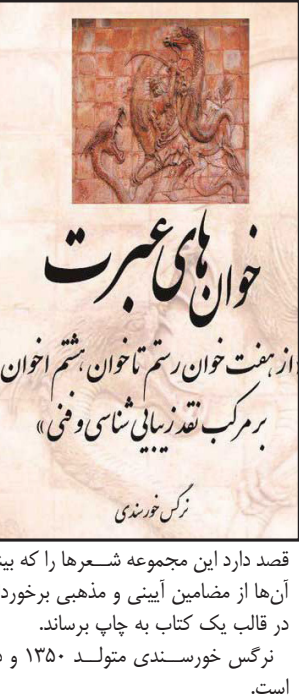 خوان‌های عبرت
«از هفت خوان رستم تا خوان هشتم اخوان
بر مرکب نقد زیبایی شناسی و فنی»
نرگس خورسندی
قصد دارد این مجموعه شــعرها را که
آن‌ها از مضامین آیینی و مذهبی
در قالب یک کتاب به چاپ برساند.
نرگس خورســندی متولــد ۱۳۵۰ و
است.